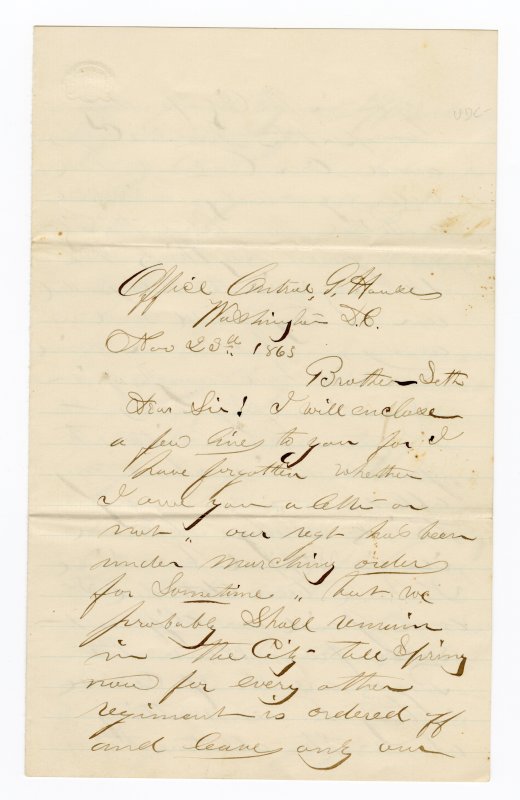 UDC
Office Central G. House
Washington D.C.
Nov 23rd 1863
Brother Seth
Dear Sir! I will enclose
a few lines to you for I
have forgotten whether
I owe you a letter or
not " our regt has been
under marching orders
for Sometime " but we
probably Shall remain
in the City till Spring
now for every other
regiment is ordered off
and leave only our